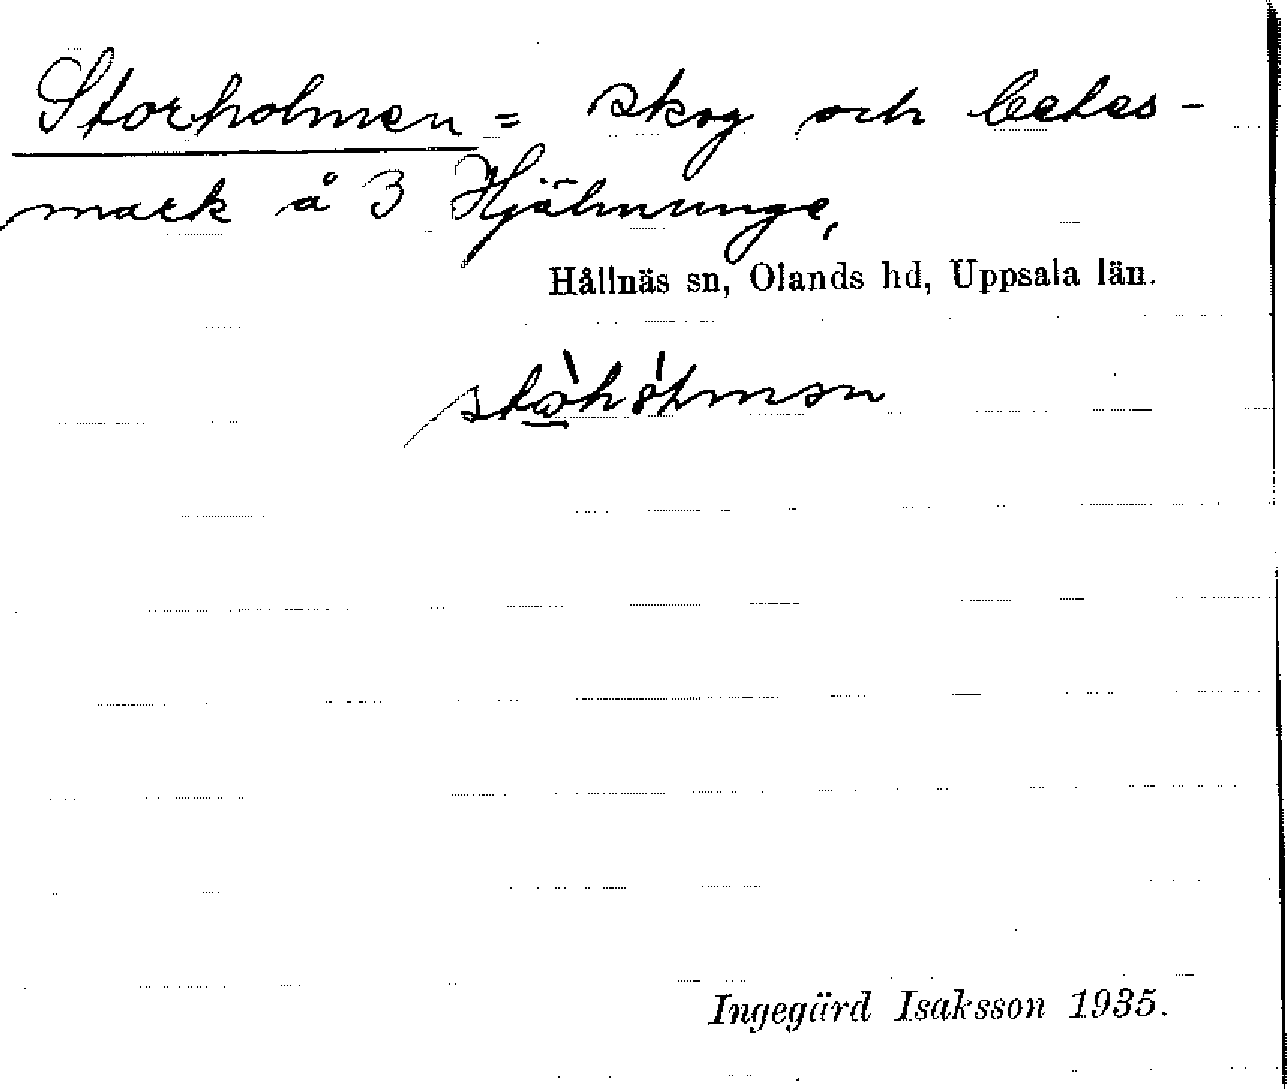 Storholmen = skog och betes-
mark å 3 Hjälmunge,
Hållnäs sn, Olands hd, Uppsala län.
Ingegärd Isaksson 1935.